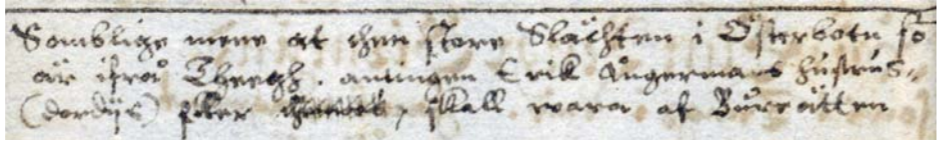 Somblige mene at then store Slächten i Österbotn så
är ifrå Theegh. antingen Erik Ångermans hustrus
(dordijs) eller, skall wara af Bureätten